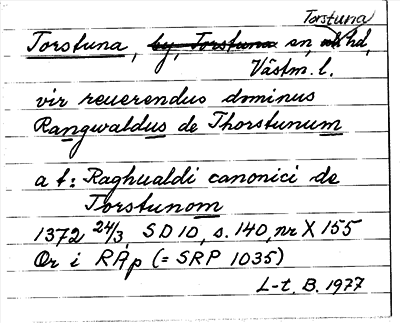 Torstuna
Torstuna, by, Torstuna sn, hd,
Västm. l.
vir reuerendus dominus
Rangwaldus de Thorstunum
a t: Raghualdi canonici de
Torstunom
1372 24/3, SD 10, s. 140, nr X 155
Or i RAp (= SRP 1035)
L-t. B. 1977